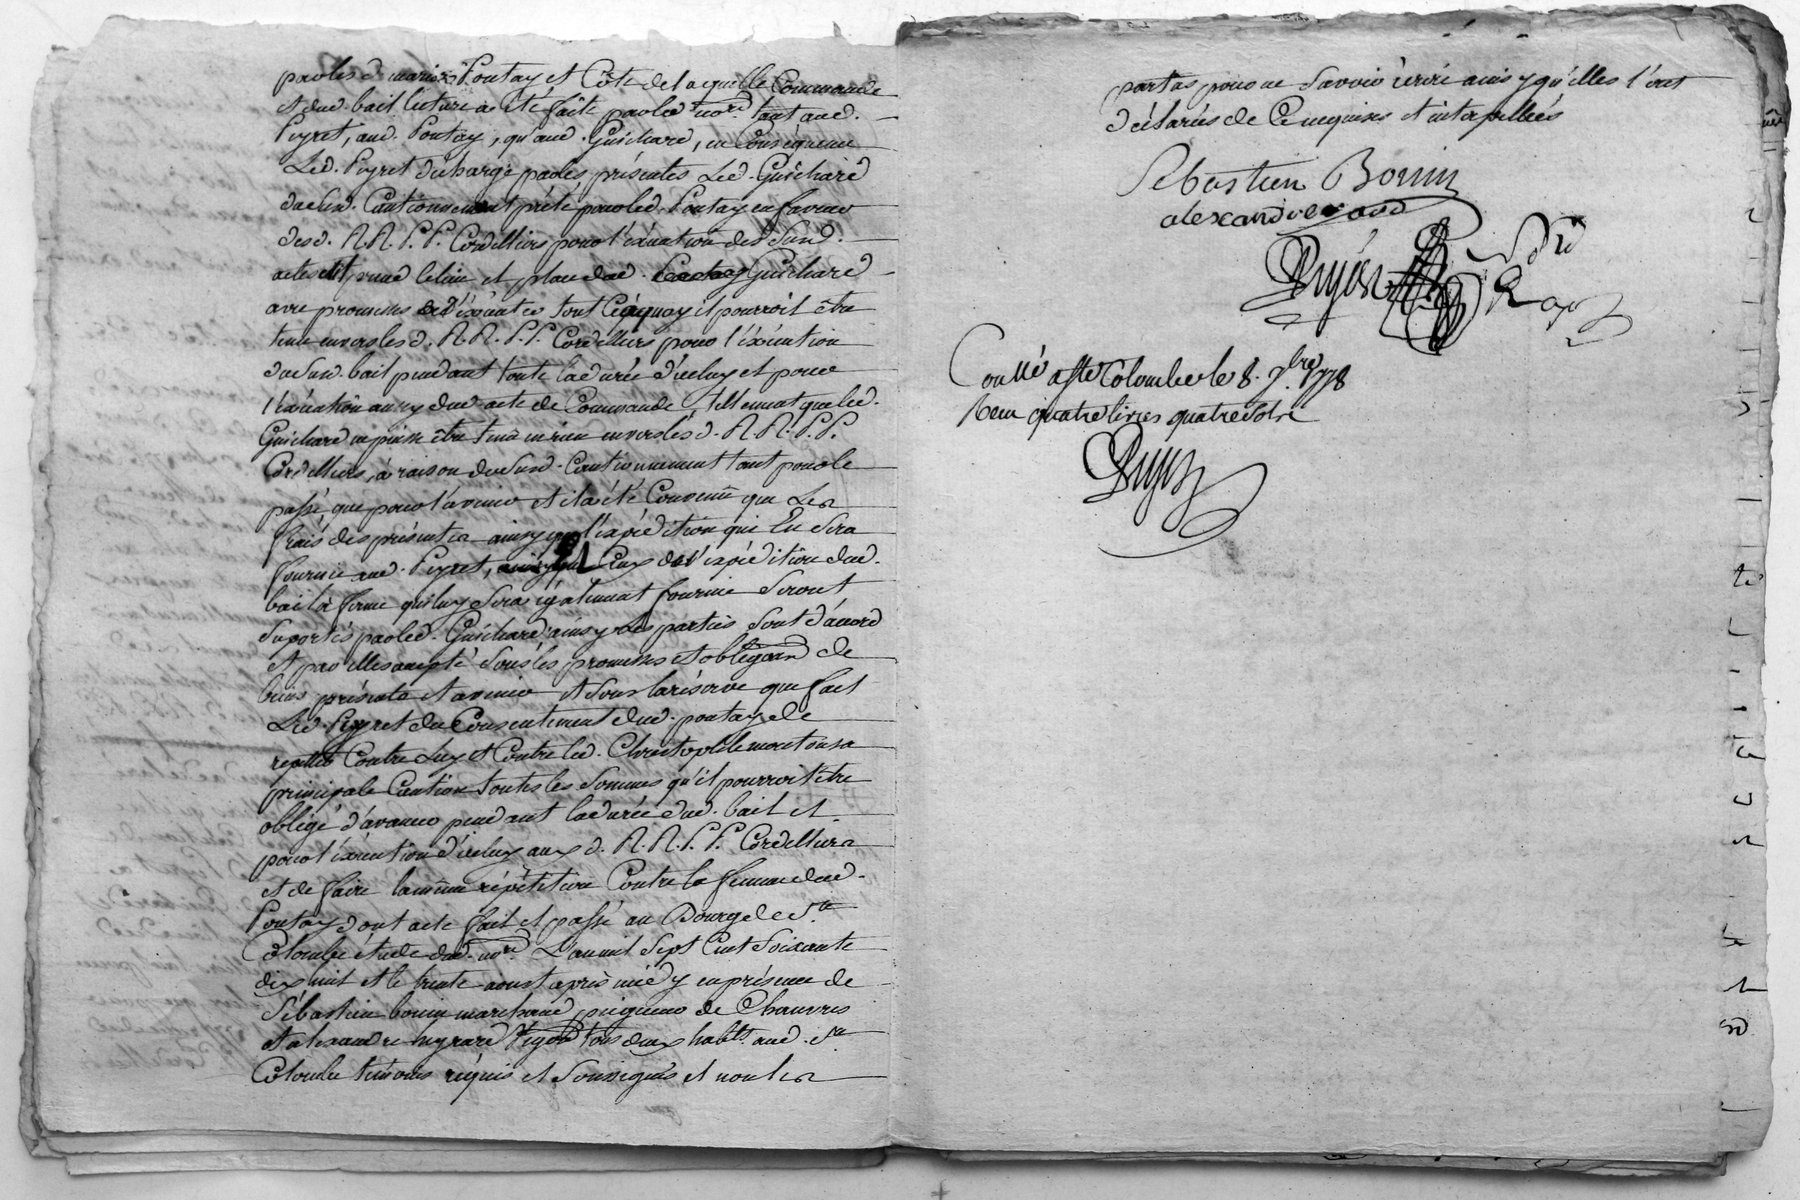 par les d. maries Pontay et Côte de laquelle Commande
et dud. bail lecture a été faite par led. nore. tant aud.
Peyret, aud. Pontay, qu'aud. Guichard, en Consequence
Led. Peyret décharge par les présentes Led. Guichard
du Susd. Cautionnement prété pour led. Pontay en faveur
desd. RR. PP. Cordelliers pour l'éxécution des Susd.
actes et prend le lieu et place dud. Guichard
avec promesses d'éxécuter tout Ce à quoy il pourroit être
tenu envers les d. RR. PP. Cordelliers pour l'éxécution
du Susd. bail pendant toute la durée d'iceluy et pour
l'éxécution aussy dud. acte de Commande tellement que led.
Guichard ne puisse être tenu en rien envers les d. RR. PP.
Cordelliers, à raison du Susd. Cautionnement tant pour le
passé que pour l'avenir et il a été Convenu que Les
frais des présentes ainsy que l'expédition qui En Sera
fournie aud. Peyret, Ceux de l'expédition dud.
bail à ferme qui luy Sera également fournie Seront
Suportés par led. Guichard ainsy Les parties Sont d'accord
et par Elles accepté Sous les promesses et obligaon de
biens présents et avenir et Sous la réserve que fait
Led. Peyret du Consentement dud. pontay de
repéter Contre Luy et Contre led. Christophle mouton sa
principale Caution toutes les Sommes qu'il pourroit être
obligé d'avancer pendant la durée dud. bail et
pour l'éxécution d'iceluy aux d. RR. PP. Cordelliers
et de faire la même répétition Contre la femme dud.
Pontay dont acte fait et passé au Bourg de Ste.
Colombe étude dud. nore. L'an mil Sept Cent Soixante
dix huit et le trente aoust après midy en présence de
Sébastien bonin marchand peigneur de Chanvres
et alexandre tous deux habts. aud. Ste.
Colombe témoins requis et Soussignés et non les
parties pour ne Savoir écrire ainsy qu'elles l'ont
déclarées de Ce requises et interpellées
Sebastien Bonin
alexandre
Pujos
Pujos
Conllé a Ste Colombe le 8. 7bre 1778
Reçu quatre livres quatre Sols
Pujos